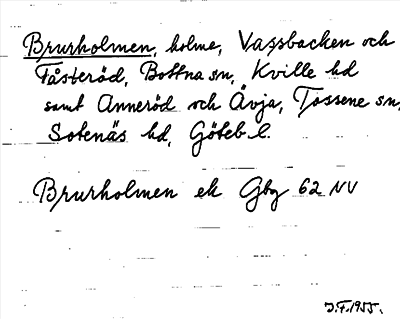 Brurholmen, holme, Vassbacken och
Fåsteröd, Bottna sn, Kville hd
samt Anneröd och Åvja, Tossene sn,
Sotenäs hd, Göteb. l.
Brurholmen ek Gbg 62 NV
J.F. 1955.